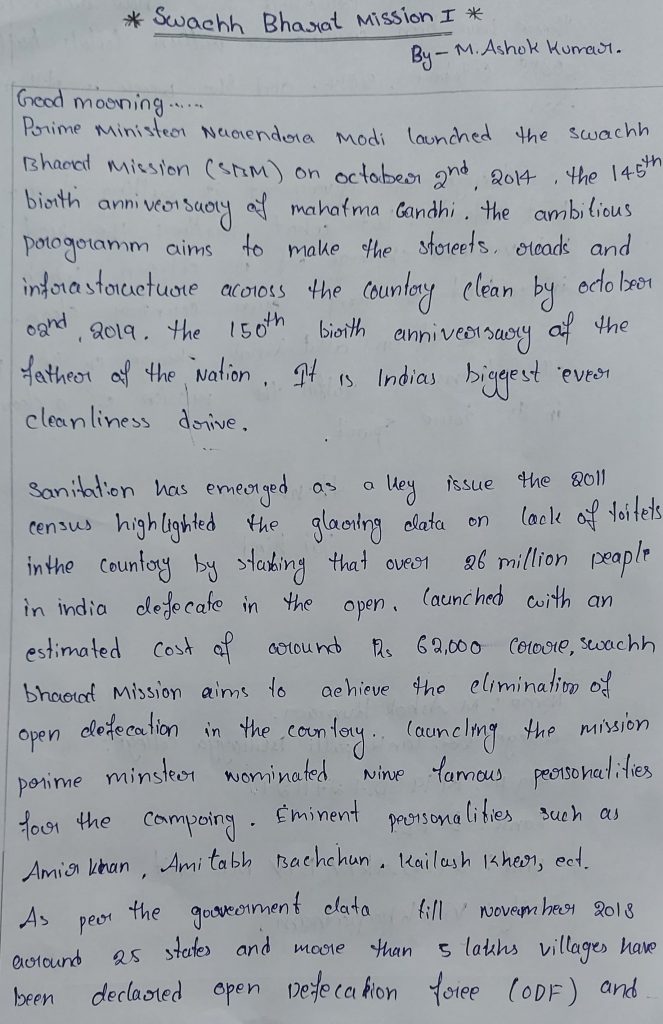 * Swachh Bharat Mission I *
By - M. Ashok Kumar.
Good morning.....
Prime Minister Narendra Modi launched the swachh
Bharat Mission (SBM) on october 2nd, 2014, the 145th
birth anniversary of mahatma Gandhi. the ambitious
programm aims to make the streets, roads and
infrastructure across the country clean by october
02nd, 2019. the 150th birth anniversary of the
father of the Nation. It is Indias biggest ever
cleanliness drive.
Sanitation has emerged as a key issue the 2011
census highlighted the glaring data on lack of toilets
inthe country by starting that over 26 million people
in india defecate in the open. launched with an
estimated cost of around Rs 62,000 crore, swachh
bharat Mission aims to achieve the elimination of
open defecation in the country.. launcing the mission
prime minster nominated Nine famous personalities
for the campaing. Eminent personalities such as
Amir khan, Amitabh Bachchun, Kailash Kher, ect.
As per the goverment data till november 2018
around 25 states and more than 5 lakhs villages have
been declared open Defecation free (ODF) and